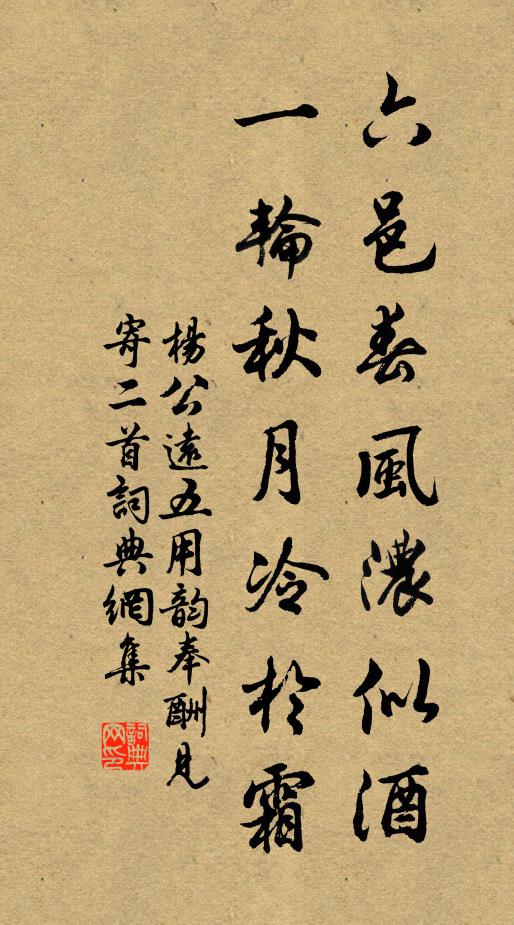 六邑春風濃似酒
一輪秋月冷於霜
楊公遠五用韵奉酬見
寄二首詞典網集
詞典
网印